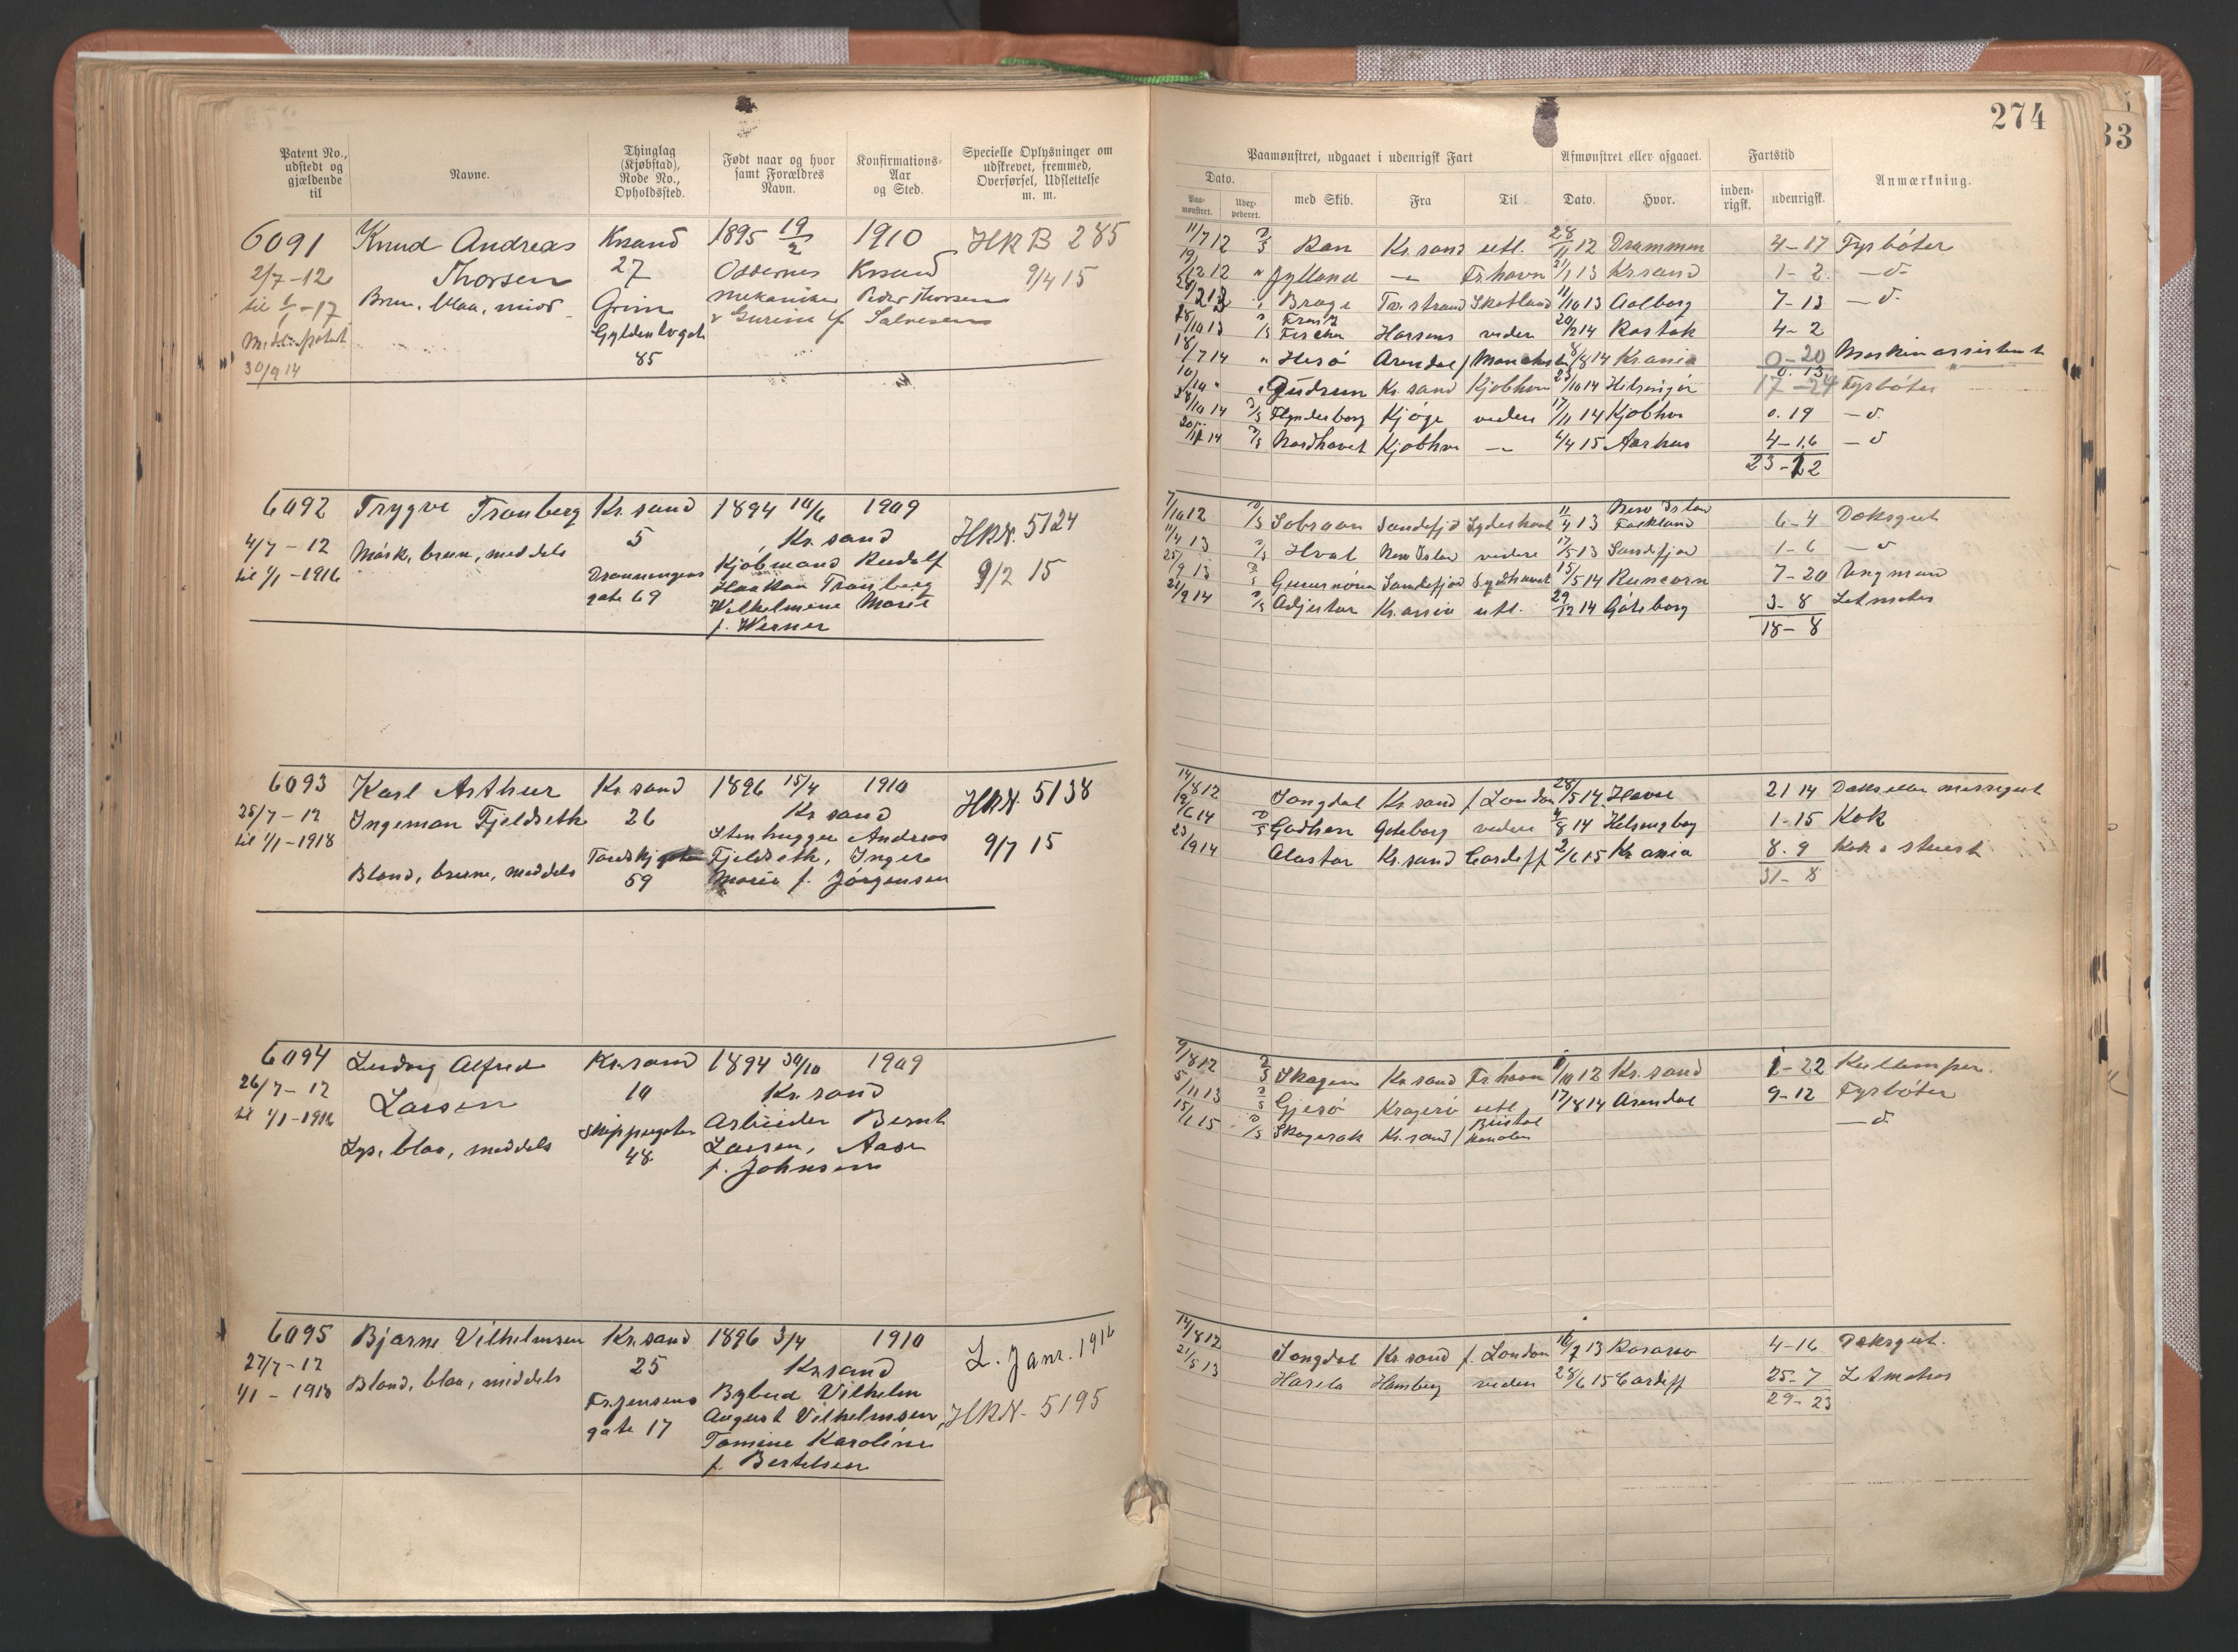 274
33
Patent No., udstedt og gjældende til
Navne.
Thinglag (Kjøbstad), Rode No., Opholdssted.
Født naar og hvor samt Forældres Navn.
Konfirmations-Aar og Sted.
Specielle Oplysninger om udskrevet, fremmed, Overførsel, Udslettelse m. m.
Paamønstret, udgaaet i udenrigsk Fart
Afmønstret eller afgaaet.
Fartstid
Anmærkning.
Dato.
Paa-mønstret.
Udex-pederet.
med Skib.
Fra
Til
Dato.
Hvor.
inden-rigsk.
udenrigsk.
6091 Knud Andreas Krsand 1895 19/2 1910 HRB 285
2/7-12 Thorsen 27 Oddernes Krsand 9/4 15
til 1/1-17 Brun, blaa, midd Grim Mekaniker Peder Thorsen
Gyldenløvgate & Gurine f. Salvesen
85
30/9 14
11/7 12 Ran Kr.sand utl. 28/11 12 Drammen 4-17 Fyrbøter
19/12 12 " Jylland -"- Fr.havn 21/1 13 Krsand 1-2 -d-
Brage Tvestrand Skotland 11/10 13 Aalborg 7-13 -d-
18/10 13 Franz Fischer Horsens videre 20/2 14 Rostok 4-2
18/7 14 " Hesø Arendal / Manchester 8/8 14 Kr.ania 0-20 Maskinassistent
0.13
" Gudrun Kr.sand Kjøbhvn 23/10 14 Helsingør 17-24 Fyrbøter
28/10 14 Flynderborg Kjøge videre 17/11 14 Kjøbhvn 0.19 -d-
20/11 14 Nordhavet Kjøbhvn -"- 6/4 15 Aarhus 4-16 -d-
23-12
6092 Trygve Tranberg Kr.sand 1894 10/6 1909
4/7-12 Mørk, brun, meddels 5 Kr.sand HRN. 5124
til 1/1-1916 Dronningens Kjøbmand Rudolf 9/2 15
gate 69 Haakon Tranberg
Vilhelmine Marie
f. Werner
7/10 12 Sobraon Sandefjd Sydishavet 11/4 13 New Island Falkland 6-4 Dæksgut
11/4 13 Hval New Island videre 17/5 13 Sandefjord 1-6 -d-
25/9 13 Sandefjord Sydhavet 15/5 14 Runcorn 7-20 Ungmand
21/9 14 Adjutor Kr.ania utl. 29/12 14 Gøteborg 3-8 Letmatros
18-8
6093 Karl Arthur Kr.sand 1896 15/4 1910 HRN. 5138
25/7-12 Ingeman Fjeldseth 26 Kr.sand 9/7 15
til 1/1-1918 Stenhugger Andreas
Blond, brune, meddels Fjeldseth, Inger
59 Marie f. Jørgensen
14/8 12 Songdal Kr.sand f. London 28/5 14 Havre 21 14 Dæks eller messegut
19/6 14 Godhem Gøteborg videre 14 Helsingborg 1-15 Kok
23/9 14 Alastor Kr.sand Cardiff 2/6 15 Kr.ania 8.9 Kok & stuert
31-8
6094 Ludvig Alfred Kr.sand 1894 30/10 1909
26/7-12 Larsen 10 Kr.sand
til 1/1-1916 Skippergaten Arbeider Bernt
Lys, blaa, meddels 48 Larsen, Aase
f. Johnsen
9/8 12 Skagen Kr.sand Fr.havn 9/10 12 Kr.sand 1-22 Kullemper.
5/11 13 Gjesø Kragerø utl. 17/8 14 Arendal 9-12 Fyrbøter
15/1 15 Skagerak Kr.sand / Bristol Kanalen -d-
6095 Bjarne Vilhelmsen Kr.sand 1896 3/4 1910 L. Janr. 1916
27/7-12 Blond, blaa, middels 25 Kr.sand
1/1-1918 Fr. Jensens Bybud Vilhelm
gate 17 August Vilhelmsen, HRN- 5195
Tomine Karoline
f. Bertelsen
14/8 12 Songdal Kr.sand f. London 16/7 13 Rosario 4-16 Dæksgut.
21/5 13 Hamburg videre 28/6 15 Cardiff 25-7 Letmatros
29-23